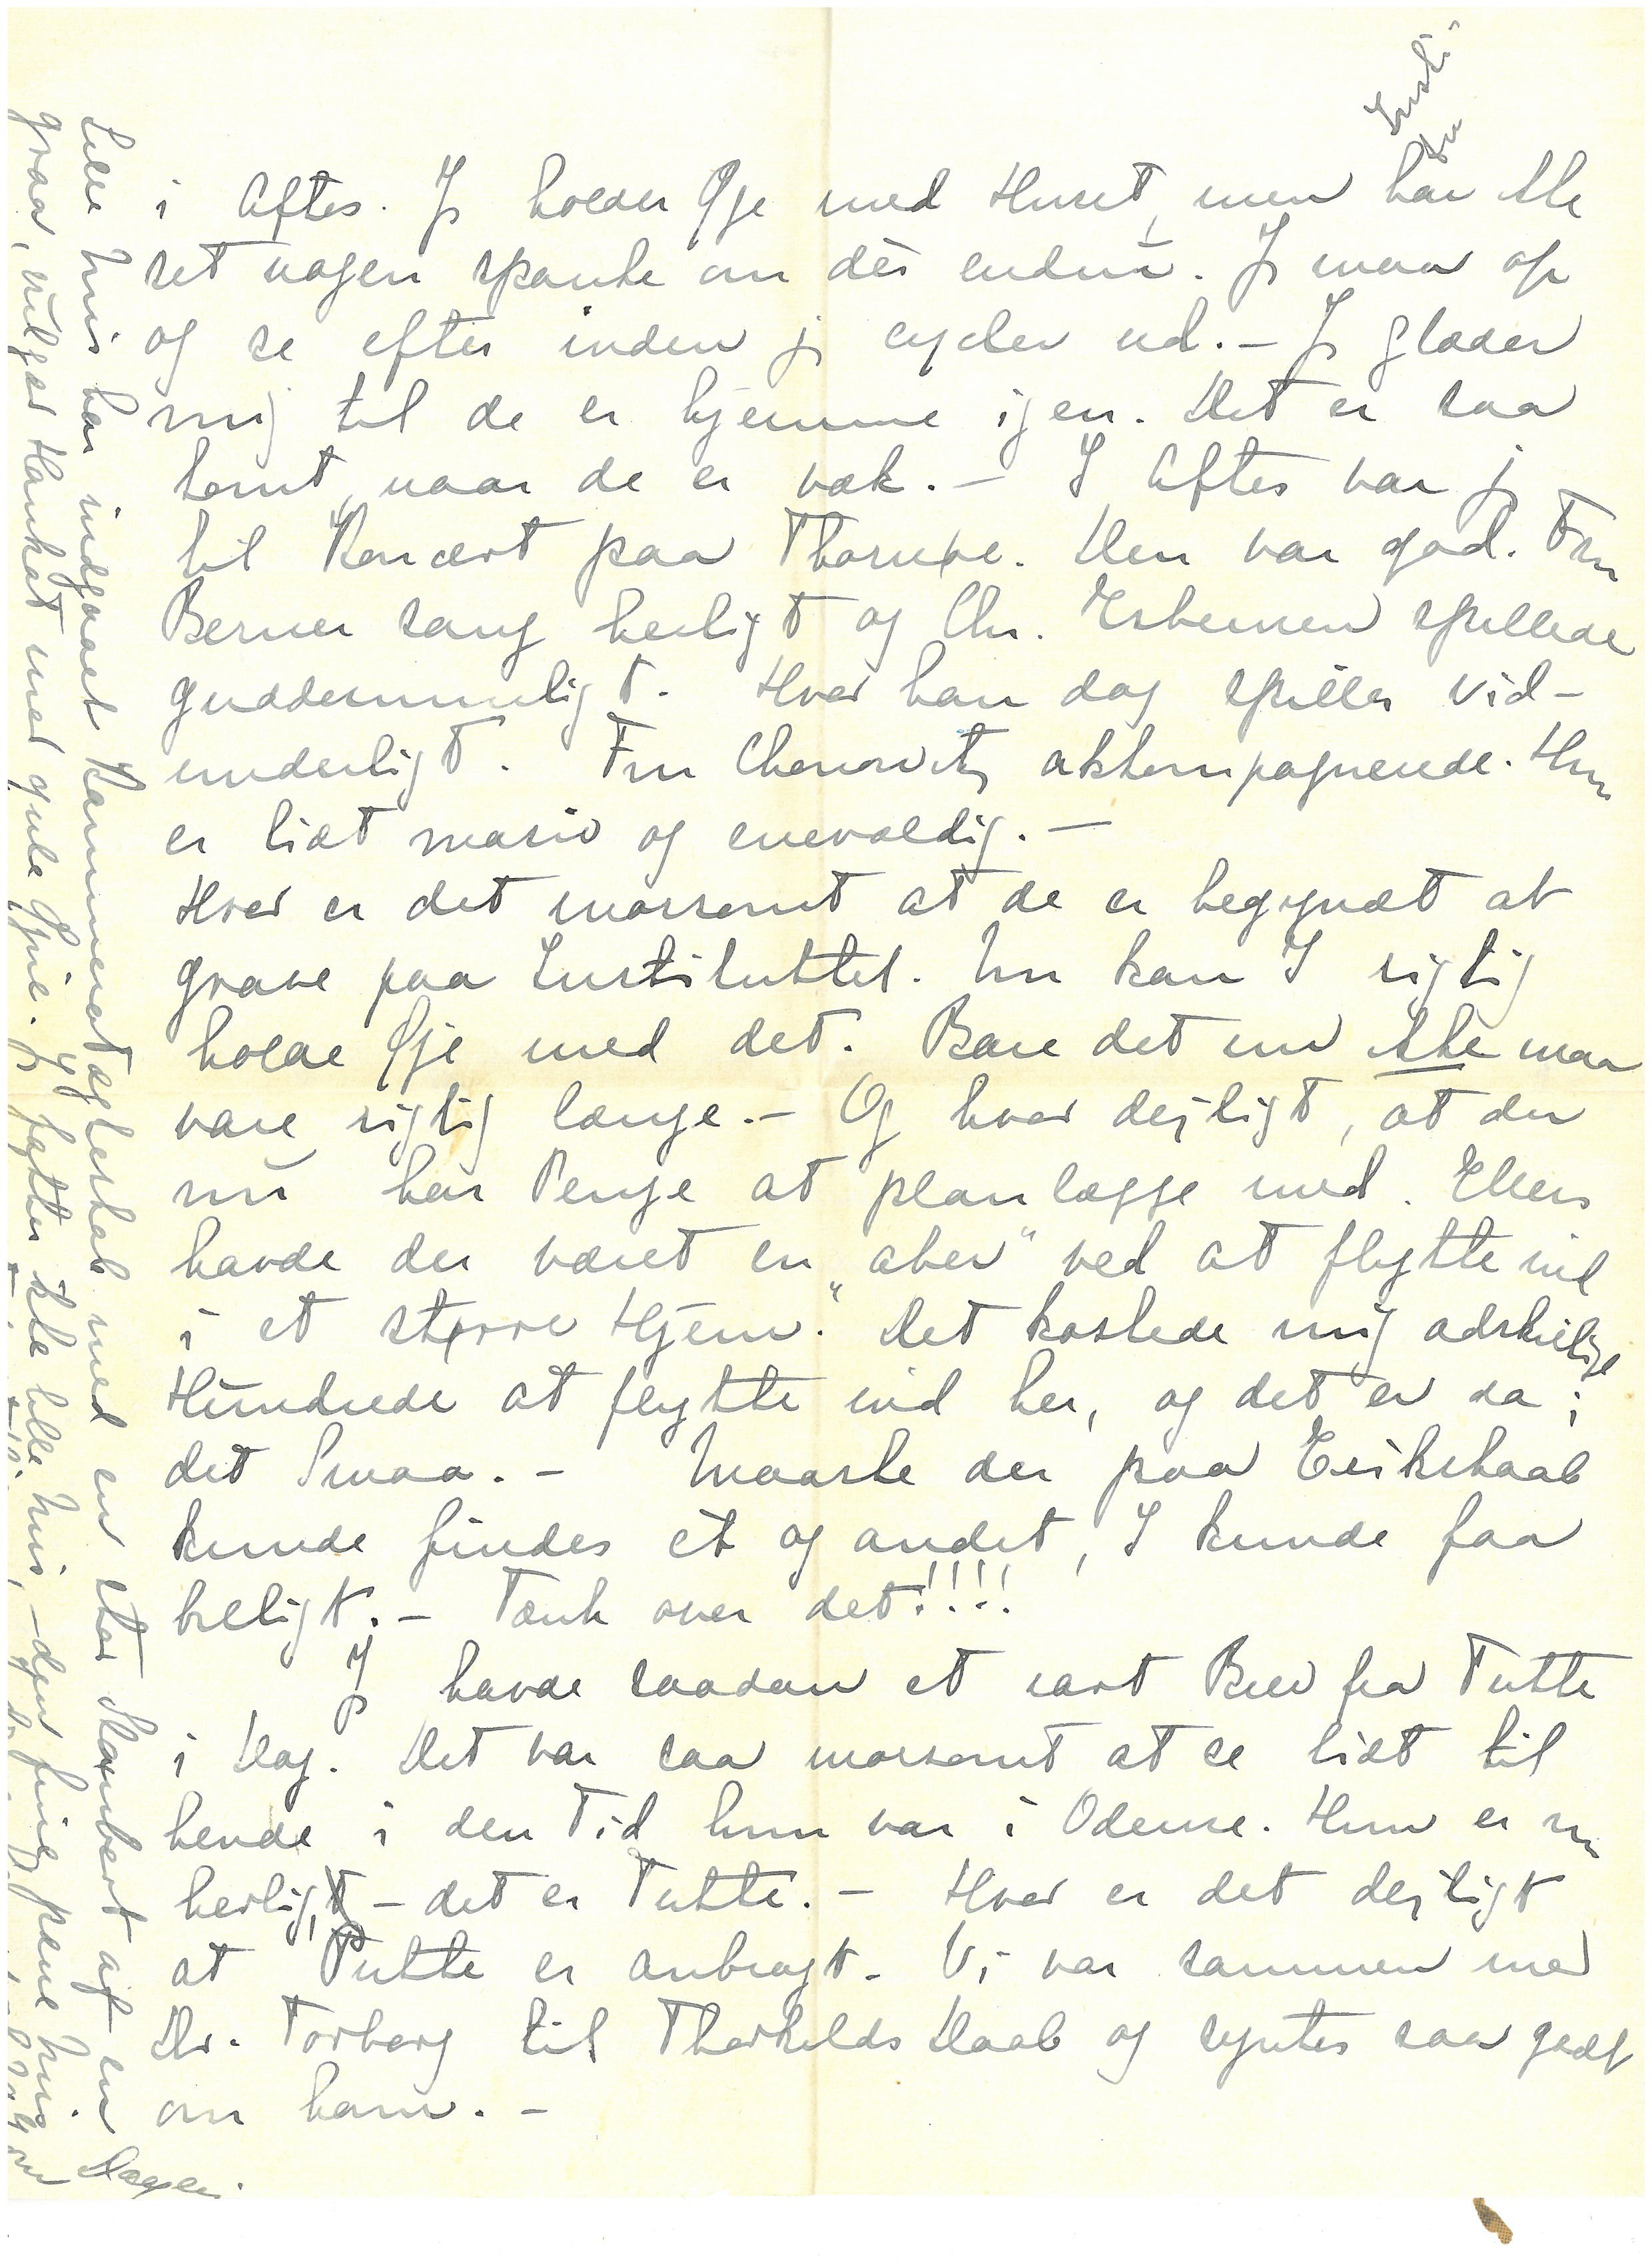 i Aftes. Jg holder Øje med Huset, men har ikke
set nogen spanke om dèr endnu. Jg maa op
og se efter inden jg cycler ud. – Jg glæder
mig til de er hjemme igen. Det er saa
tomt, naar de er væk. – I Aftes var jg
til Koncert paa Thorupe. Den var god. Fru
Berner sang herligt og Chr. Esbensen spillede
guddommeligt. Hvor han dog spiller vid-
underligt. Fru akkompagnerede. Hun
er lidt masiv og enevældig. –
Hvor er det morsomt at de er begyndt at
grave paa Instituttet. Nu kan I rigtig
holde Øje med det. Bare det nu ikke maa
vare rigtig længe. – Og hvor dejligt, at der
nu har Penge at planlægge med. Ellers
havde der været en "aber" ved at flytte ind
i et "større Hjem". Det kostede mig adskillige
Hundrede at flytte ind her, og det er da i
det Smaa. – Maaske der paa Erikshaab
kunde findes èt og andet, I kunde faa
beligt. – Tænk over det!!!!
Jg havde saadan et rart Brev fra Tutte
i Dag. Det var saa morsomt at se lidt til
hende i den Tid hun var i Odense. Hun er nu
herlig, – det er Tutte. – Hvor er det dejligt
at Putte er anbragt. Vi var sammen med
Dr. Torberg til Thorkilds Daab og syntes saa godt
om ham. –
Lille Mis har indgaaet Kammeratægteskab med en stor Skovbert af en
graa, vulgær Hankat med gule Øjne. Jg fatter ikke lille Mis, – den fine, pæne Mis.